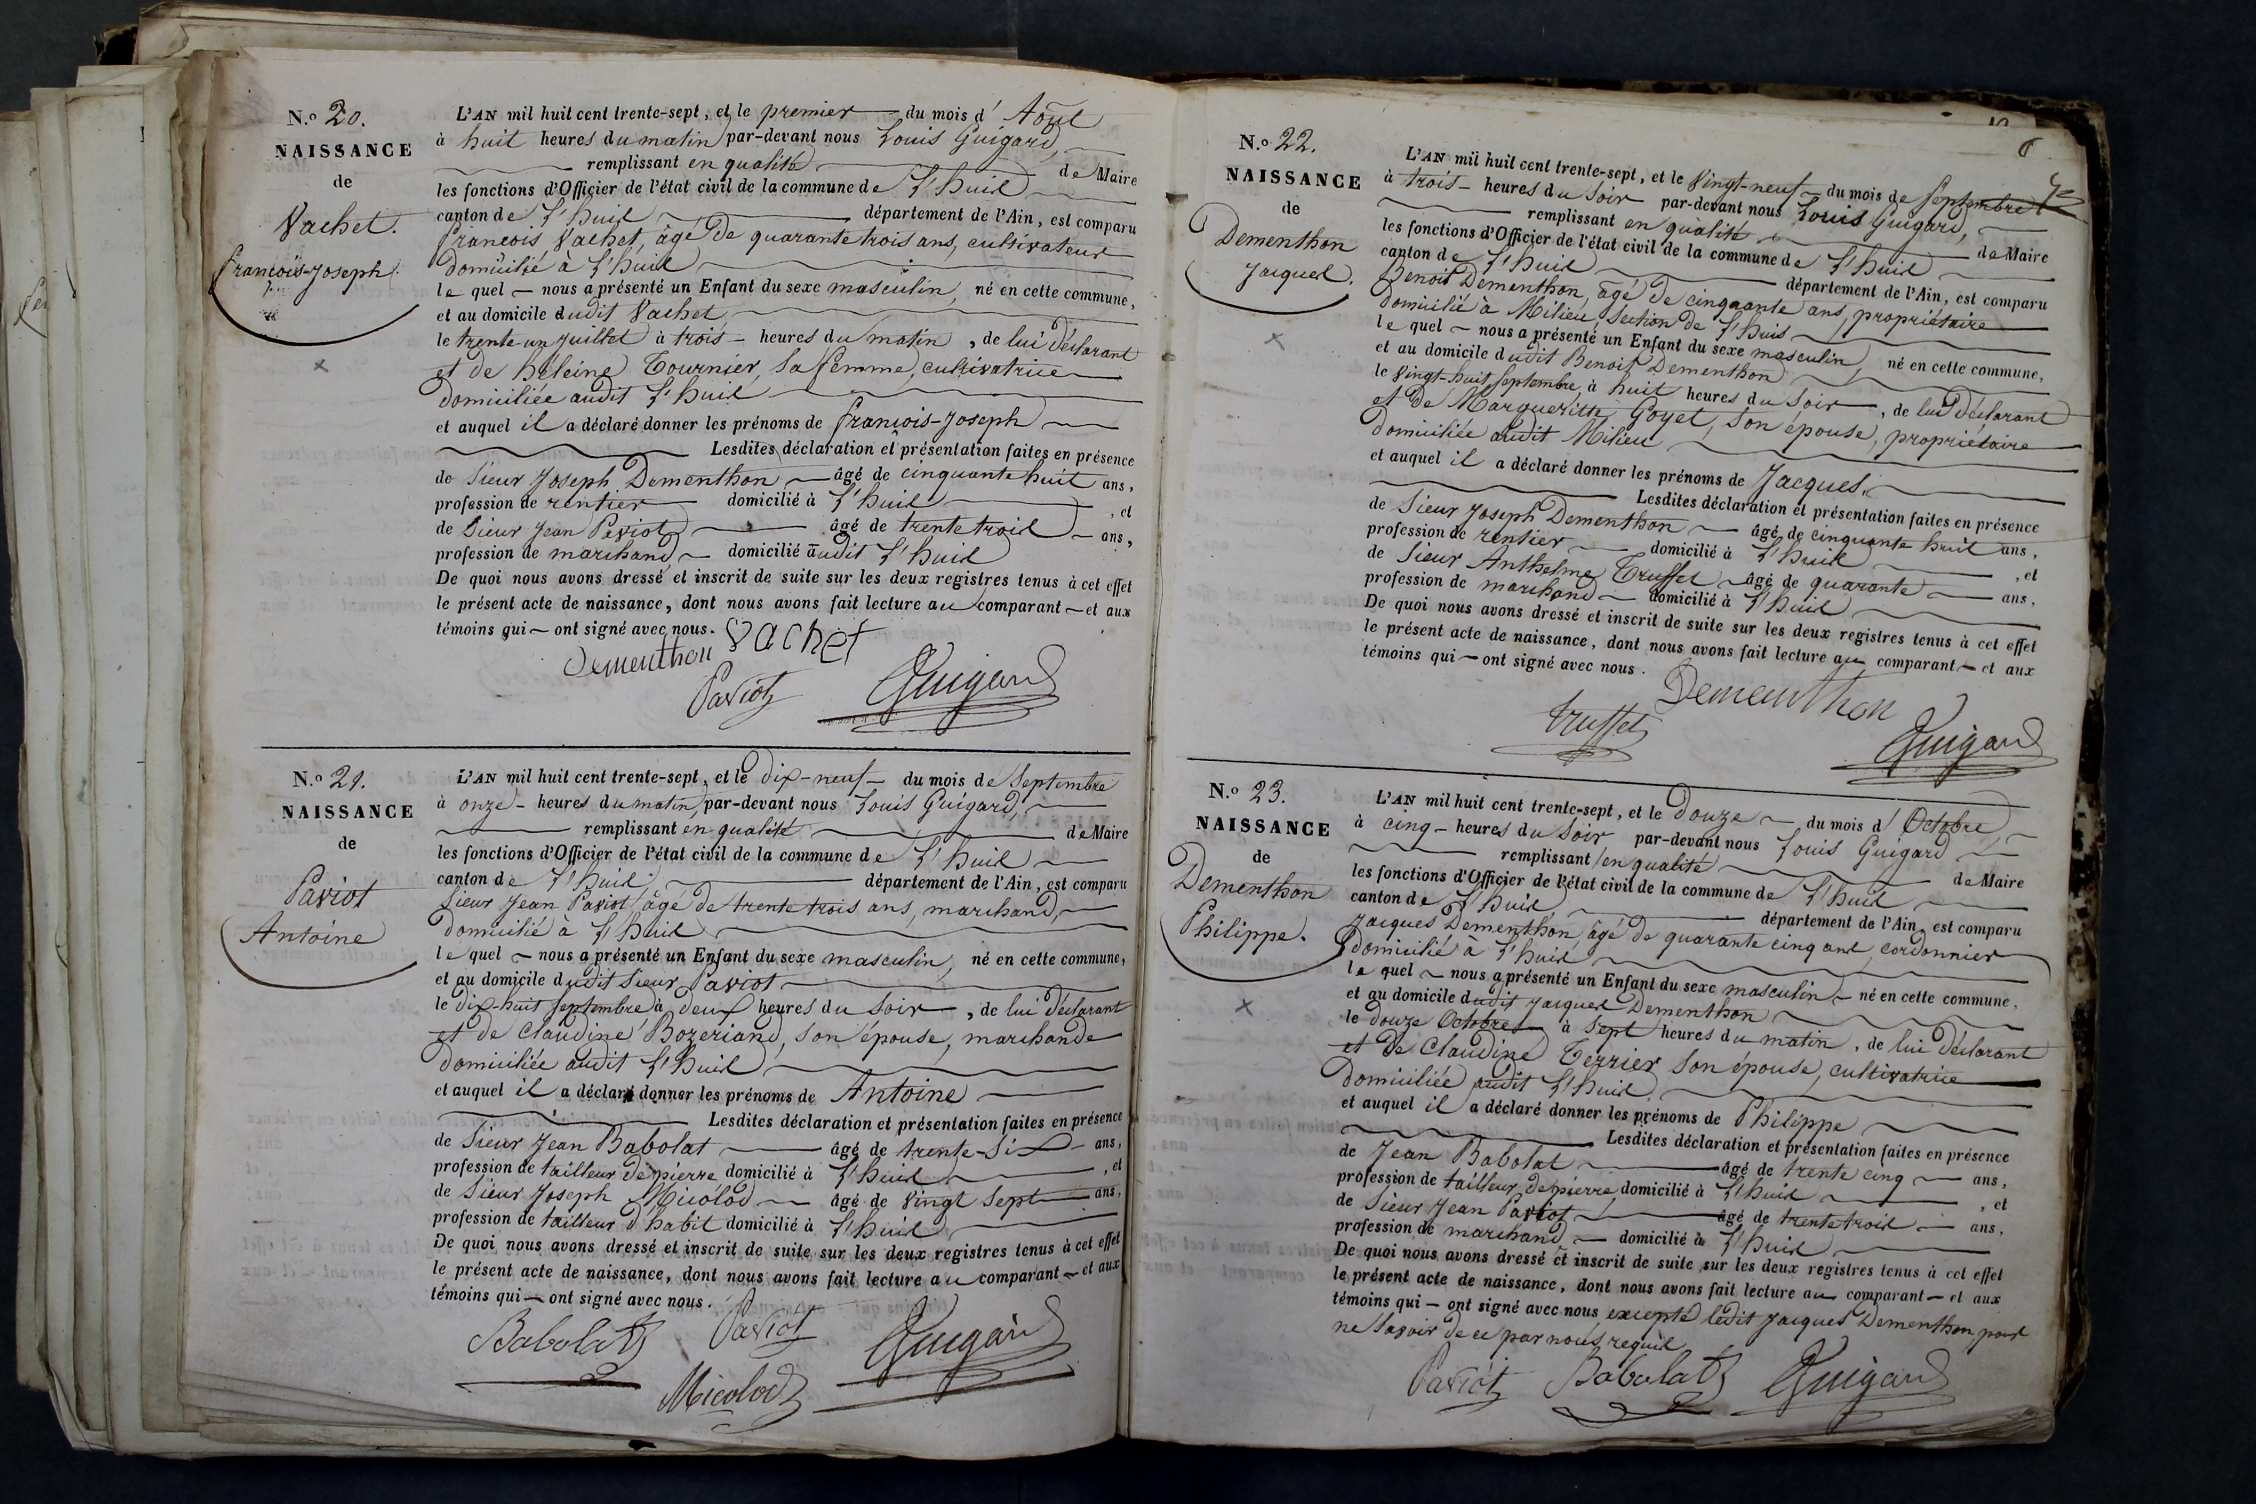 N.o 20.
NAISSANCE
de
Vachet.
françois-Joseph.
L'AN mil huit cent trente-sept, et le premier du mois d' Août
à huit heures du matin par-devant nous Louis Guigard,
remplissant en qualité de Maire
les fonctions d'Officier de l'état civil de la commune de L'huis
canton de L'huis département de l'Ain, est comparu
françois Vachet, âgé de quarante trois ans, cultivateur
domicilié à L'huis
le quel — nous a présenté un Enfant du sexe masculin, né en cette commune,
et au domicile dudit Vachet,
le trente un juillet à trois — heures du matin, de lui déclarant
et de héleine Tournier, sa femme, cultivatrice
domiciliée audit L'huis
et auquel il a déclaré donner les prénoms de françois-Joseph
Lesdites déclaration et présentation faites en présence
de Sieur Joseph Dementhon — âgé de cinquante huit ans,
profession de rentier domicilié à L'huis, et
de Sieur Jean Paviot âgé de trente trois — ans,
profession de marchand — domicilié audit L'huis
De quoi nous avons dressé et inscrit de suite sur les deux registres tenus à cet effet
le présent acte de naissance, dont nous avons fait lecture au comparant — et aux
témoins qui — ont signé avec nous. Vachet
Dementhon
Paviot Guigard
N.o 21.
NAISSANCE
de
Paviot
Antoine
L'AN mil huit cent trente-sept, et le dix-neuf — du mois de Septembre
à onze — heures du matin, par-devant nous Louis Guigard,
remplissant en qualité de Maire
les fonctions d'Officier de l'état civil de la commune de L'huis
canton de L'huis département de l'Ain, est comparu
Sieur Jean Paviot âgé de trente trois ans, marchand,
domicilié à L'huis
le quel — nous a présenté un Enfant du sexe masculin, né en cette commune,
et au domicile dudit Sieur Paviot
le dix-huit Septembre à deux heures du Soir, de lui déclarant
et de Claudine Bozeriand, son épouse, marchande
domiciliée audit L'huis
et auquel il a déclaré donner les prénoms de Antoine
Lesdites déclaration et présentation faites en présence
de Sieur Jean Babolat âgé de trente-six ans,
profession de tailleur de pierre domicilié à L'huis, et
de Sieur Joseph Micolod — âgé de Vingt Sept ans,
profession de tailleur d'habit domicilié à L'huis
De quoi nous avons dressé et inscrit de suite sur les deux registres tenus à cet effet
le présent acte de naissance, dont nous avons fait lecture au comparant — et aux
témoins qui — ont signé avec nous.
Babolat Paviot Guigard
Micolod
6
N.o 22.
NAISSANCE
de
Dementhon
Jacques.
L'AN mil huit cent trente-sept, et le Vingt-neuf — du mois de Septembre
à trois — heures du Soir par-devant nous Louis Guigard,
remplissant en qualité de Maire
les fonctions d'Officier de l'état civil de la commune de L'huis
canton de L'huis département de l'Ain, est comparu
Benoit Dementhon, âgé de cinquante ans, propriétaire
domicilié à Milieu, Section de L'huis
le quel — nous a présenté un Enfant du sexe masculin, né en cette commune,
et au domicile dudit Benoit Dementhon
le Vingt-huit Septembre, à huit heures du Soir, de lui déclarant
et de Marguerite Goyet, son épouse, propriétaire
domiciliée audit Milieu
et auquel il a déclaré donner les prénoms de Jacques.
Lesdites déclaration et présentation faites en présence
de Sieur Joseph Dementhon — âgé de cinquante huit ans,
profession de rentier domicilié à L'huis, et
de Sieur Anthelme Truffet — âgé de quarante — ans,
profession de marchand — domicilié à L'huis
De quoi nous avons dressé et inscrit de suite sur les deux registres tenus à cet effet
le présent acte de naissance, dont nous avons fait lecture au comparant — et aux
témoins qui — ont signé avec nous.
Dementhon
truffet Guigard
N.o 23.
NAISSANCE
de
Dementhon
Philippe.
L'AN mil huit cent trente-sept, et le Douze — du mois d' Octobre,
à cinq — heures du Soir par-devant nous Louis Guigard
remplissant en qualité de Maire
les fonctions d'Officier de l'état civil de la commune de L'huis
canton de L'huis, département de l'Ain, est comparu
Jacques Dementhon, âgé de quarante cinq ans, cordonnier
domicilié à L'huis
le quel — nous a présenté un Enfant du sexe masculin — né en cette commune,
et au domicile dudit Jacques Dementhon
le douze Octobre à Sept heures du matin, de lui déclarant
et de Claudine Terrier son épouse, cultivatrice
domiciliée audit L'huis
et auquel il a déclaré donner les prénoms de Philippe
Lesdites déclaration et présentation faites en présence
de Jean Babolat âgé de trente cinq — ans,
profession de tailleur de pierre, domicilié à L'huis, et
de Sieur Jean Paviot âgé de trente trois — ans,
profession de marchand — domicilié à L'huis
De quoi nous avons dressé et inscrit de suite sur les deux registres tenus à cet effet
le présent acte de naissance, dont nous avons fait lecture au comparant — et aux
témoins qui — ont signé avec nous excepté ledit Jacques Dementhon pour
ne Savoir de ce par nous requis
Paviot Babolat Guigard